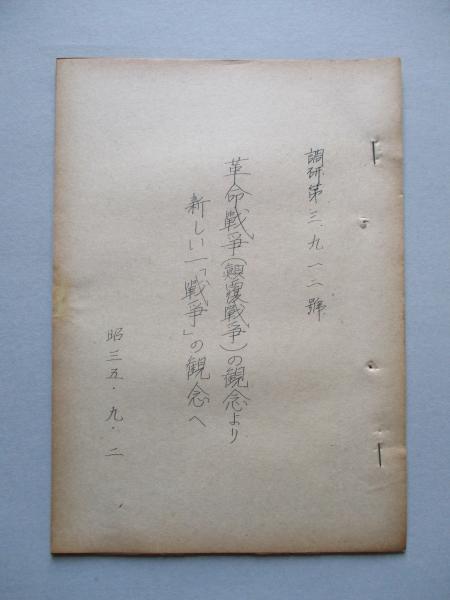 調研第三九一二號
革命戰爭(顚覆戰爭)の観念より
新しい「戰爭」の観念へ
昭三五・九・二